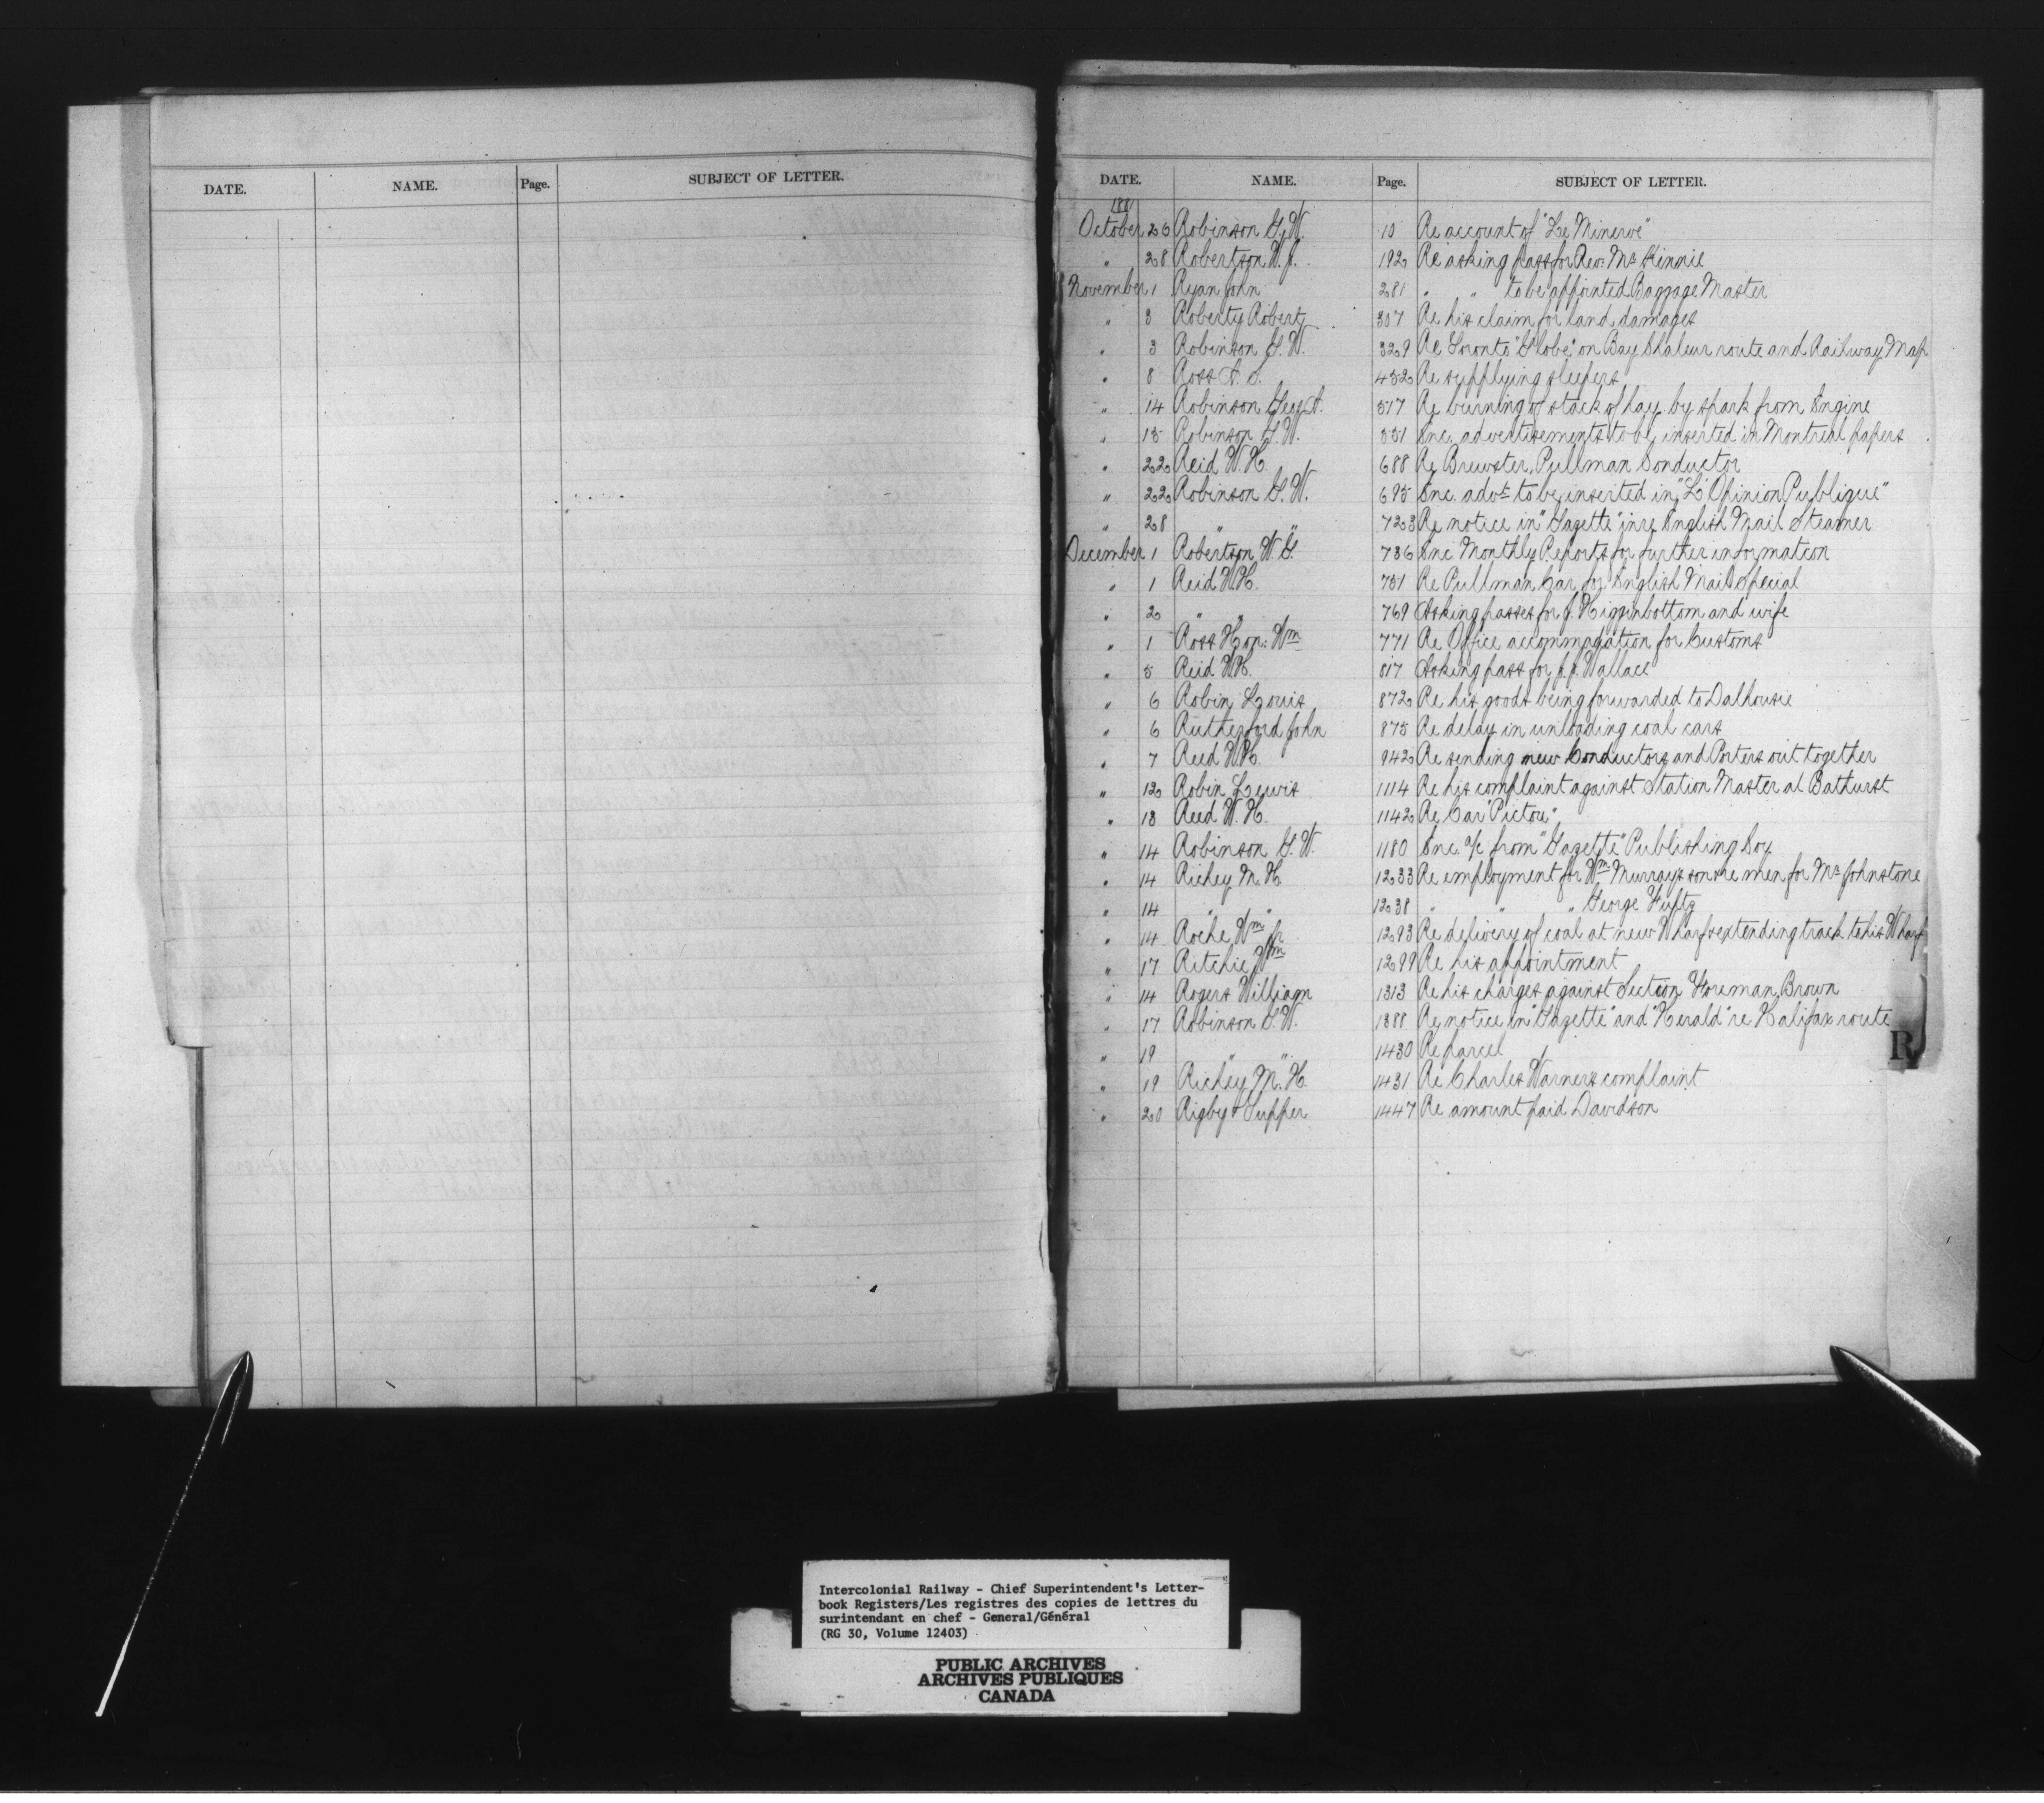 DATE. NAME. Page. SUBJECT OF LETTER.
DATE. NAME. Page. SUBJECT OF LETTER.
1881
October 26 Robinson G. W. 10 Re account of "Le Minerve"
" 28 Robertson W. J. 192 Re asking pass for Rev: Mc Kinnie
November 1 Ryan John 281 " " to be appointed Baggage Master
" 3 Roberty Robert 307 Re his claim for land damages
" 3 Robinson G. W. 329 Re Toronto "Globe" on Bay Chaleur route and Railway Map
" 8 Ross A. S. 452 Re supplying sleepers
" 14 Robinson Geo. A. 517 Re burning of stack of hay by spark from Engine
" 15 Robinson G. W. 551 Enc. advertisements to be inserted in Montreal papers
" 22 Reid W. H. 688 Re Brewster, Pullman Conductor
" 22 Robinson G. W. 695 Enc. advt to be inserted in "L'Opinion Publique"
" 28 " " 723 Re notice in "Gazette" in re English Mail Steamer
December 1 Robertson W. G. 736 Enc Monthly Reports for further information
" 1 Reid W. H. 751 Re Pullman Car for English Mail Special
" 2 " " 769 Asking passes for J. Higginbottom and wife
" 1 Ross Hon: Wm 771 Re Office accommodation for Customs
" 5 Reid W. H. 817 Asking pass for J. J. Wallace
" 6 Robin Louis 872 Re his goods being forwarded to Dalhousie
" 6 Rutherford John 875 Re delay in unloading coal cars
" 7 Reed W. H. 942 Re sending new Conductors and Porters out together
" 12 Robin Lewis 1114 Re his complaint against Station Master at Bathurst
" 13 Reed W. H. 1142 Re Car "Pictou"
" 14 Robinson G. W. 1180 Enc. a/c from "Gazette" Publishing Coy
" 14 Richey M. H. 1233 Re employment for Wm Murray's son & re men for Mr Johnstone
" 14 " " 1238 " " " George
" 14 Roche Wm Jr 1293 Re delivery of coal at new Wharf & extending track to his Wharf
" 17 Ritchie Wm 1299 Re his appointment
" 14 Rogers William 1313 Re his charges against Section Foreman Brown
" 17 Robinson G. W. 1388 Re notice in "Gazette" and "Herald" re Halifax route
" 19 " " 1430 Re parcel
" 19 Richey M. H. 1431 Re Charles Warners complaint
" 20 Rigby & Tupper 1447 Re amount paid Davidson
R
Intercolonial Railway - Chief Superintendent's Letter-
book Registers/Les registres des copies de lettres du
surintendant en chef - General/Général
(RG 30, Volume 12403)
PUBLIC ARCHIVES
ARCHIVES PUBLIQUES
CANADA